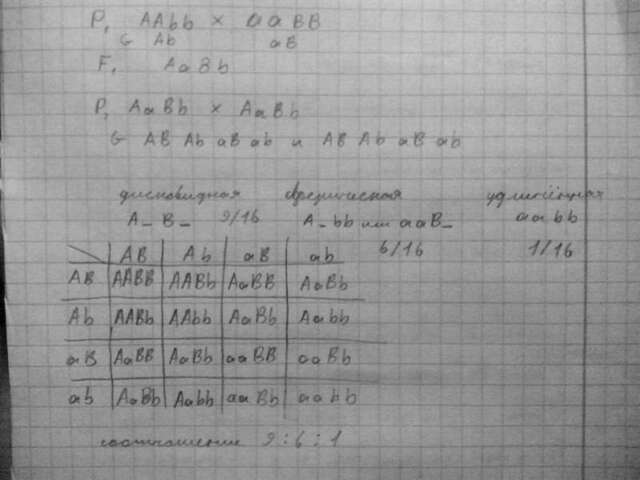 P₁ AAbb × aaBB
G Ab aB
F₁ AaBb
P₂ AaBb × AaBb
G AB Ab aB ab и AB Ab aB ab
дисковидная сферическая удлинённая
A_B_ 9/16 A_bb или aaB_ aabb
6/16 1/16
AB Ab aB ab
AB AABB AABb AaBB AaBb
Ab AABb AAbb AaBb Aabb
aB AaBB AaBb aaBB aaBb
ab AaBb Aabb aaBb aabb
соотношение 9:6:1